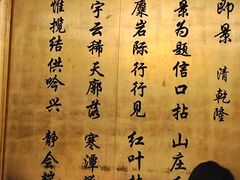 即景 清 乾隆
景为题信口拈 山庄
岩际行行见 红叶
宇云稀天廓落 寒潭
惟揽结供吟兴 静会